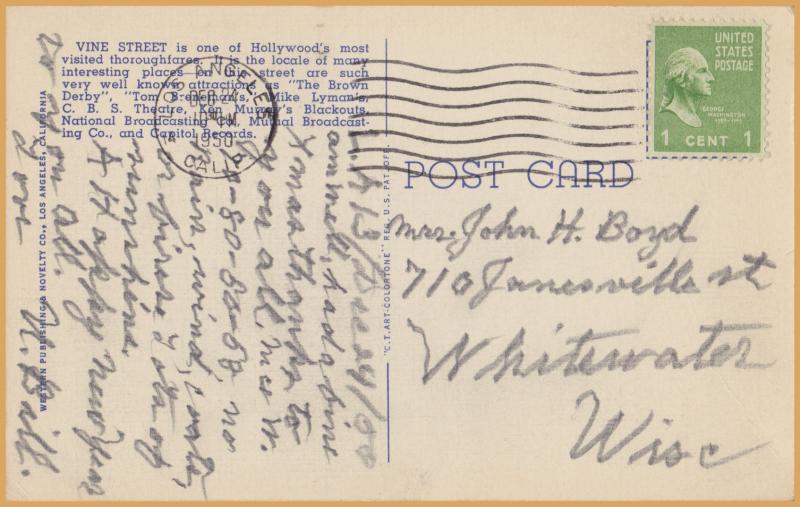 VINE STREET is one of Hollywood's most
visited thoroughfares. It is the locale of many
interesting places on this street are such
very well known attractions as "The Brown
Derby", "Tom Breneman's, Mike Lyman's,
C. B. S. Theatre, Ken Murray's Blackouts,
National Broadcasting Co., Mutual Broadcast-
ing Co., and Capitol Records.
LOS ANGELES
DEC 24
1950
CALIF.
UNITED
STATES
POSTAGE
GEORGE
WASHINGTON
1789-1797
1 CENT 1
POST CARD
Mrs. John H. Boyd
710 Janesville st
Whitewater
Wisc
am well, had a fine
Xmas thanks to
you all.
80-82-08 no
rain, wind, cold,
or lots of
sunshine.
A Happy new Year
to you all.
Love
WESTERN PUBLISHING & NOVELTY CO., LOS ANGELES, CALIFORNIA
"C.T. ART-COLORTONE" REG. U.S. PAT. OFF.